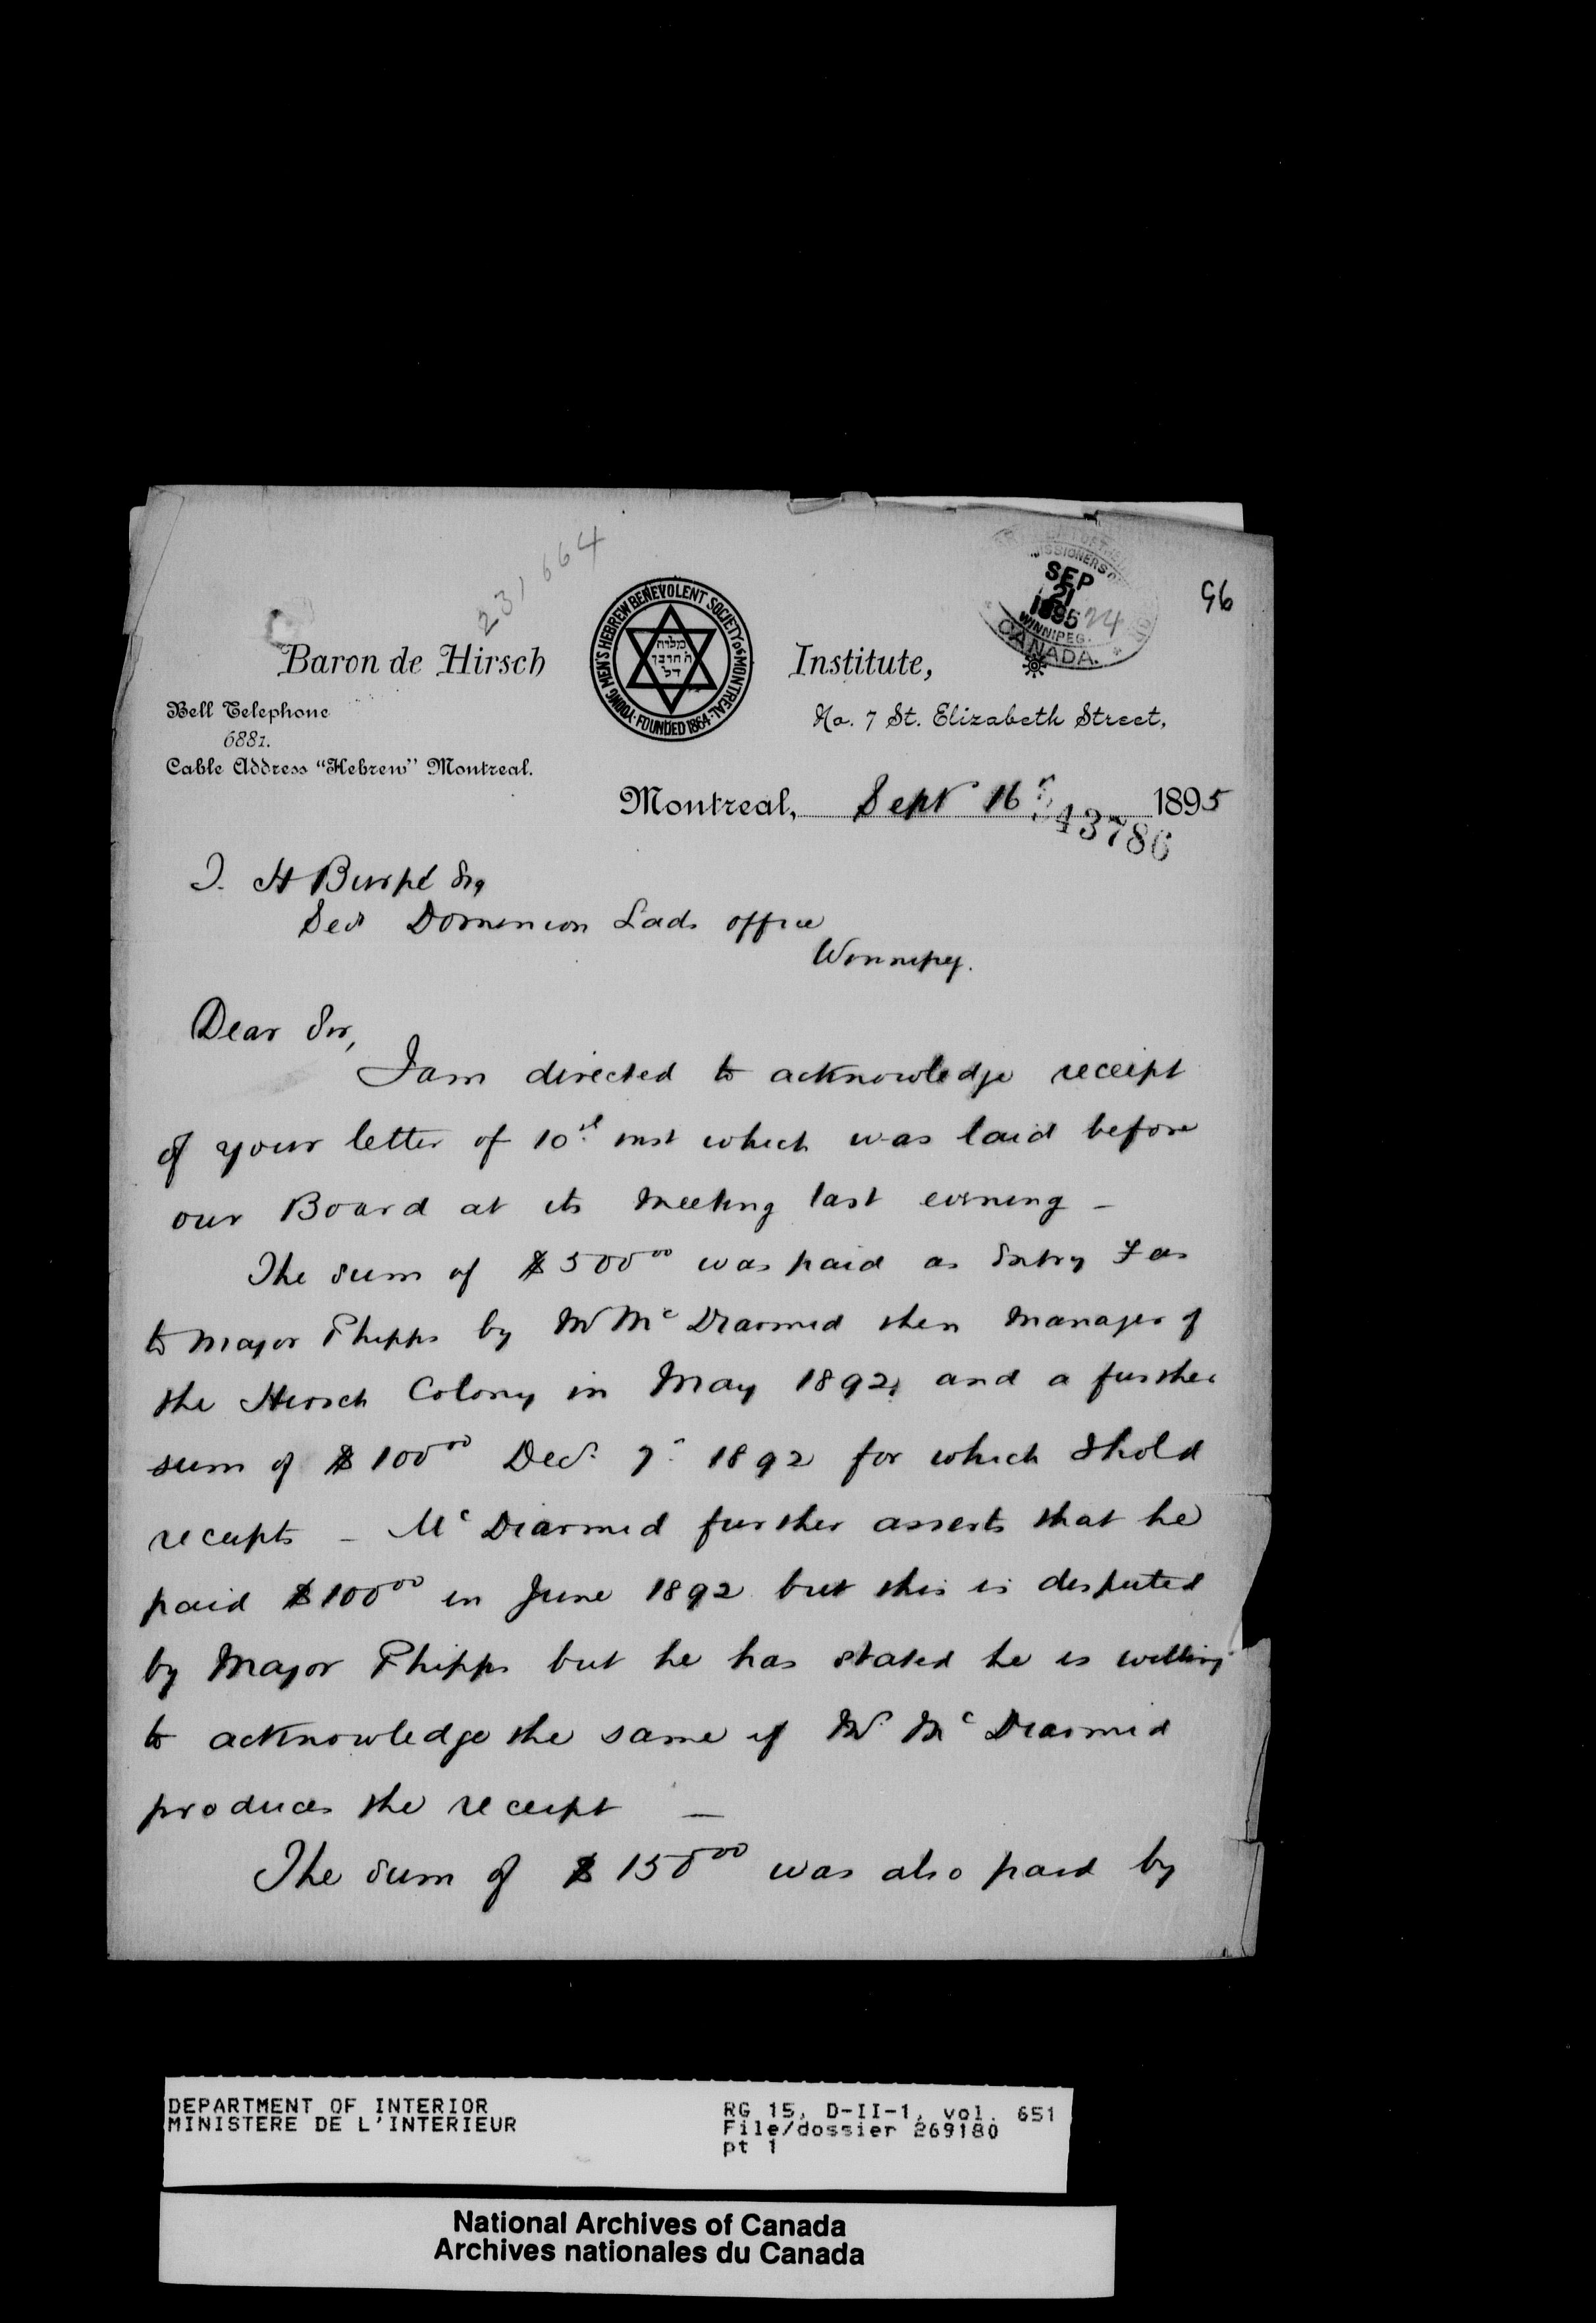 231664
SEP
21
1895
24
WINNIPEG.
CANADA.
96
YOUNG MEN'S HEBREW BENEVOLENT SOCIETY OF MONTREAL
FOUNDED 1864
Baron de Hirsch Institute,
Bell Telephone
6881.
Cable Address "Hebrew" Montreal.
No. 7 St. Elizabeth Street,
Montreal, Sept 16 1895
343786
J. H Burpé Esq
Secy Dominion Lads office
Winnipeg.
Dear Sir,
I am directed to acknowledge receipt
of your letter of 10th inst which was laid before
our Board at its meeting last evening –
The sum of $500 00 was paid as Entry Fees
to Major Phipps by Mr McDiarmid then Manager of
the Hirsch Colony in May 1892, and a further
sum of $100 00 Decr 7th 1892 for which I hold
receipts – McDiarmid further asserts that he
paid $100 00 in June 1892 but this is disputed
by Major Phipps but he has stated he is willing
to acknowledge the same if Mr McDiarmid
produces the receipt –
The sum of $150 00 was also paid by
DEPARTMENT OF INTERIOR
MINISTERE DE L'INTERIEUR
RG 15, D-II-1, vol. 651
File/dossier 269180
pt 1
National Archives of Canada
Archives nationales du Canada